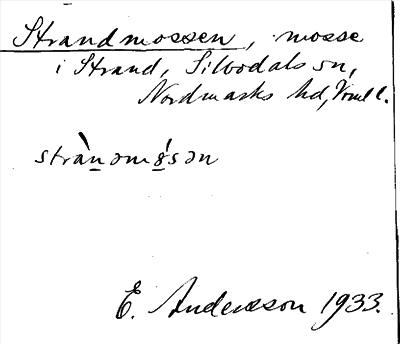 Strandmossen, mosse
i Strand, Silbodals sn,
Nordmarks hd, Vrml l.
stràn̲əmó̲sən
E. Andersson 1933.